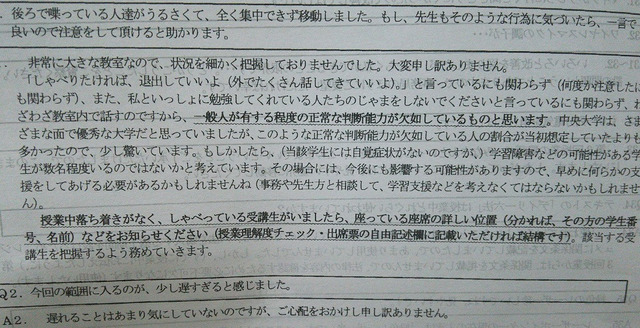 ．後ろで喋っている人達がうるさくて、全く集中できず移動しました。もし、先生もそのような行為に気づいたら、一言で
良いので注意をして頂けると助かります。
．　非常に大きな教室なので、状況を細かく把握しておりませんでした。大変申し訳ありません。
「しゃべりたければ、退出していいよ（外でたくさん話してきていいよ）。」と言っているにも関わらず（何度か注意したに
も関わらず）、また、私といっしょに勉強してくれている人たちのじゃまをしないでくださいと言っているにも関らず、わ
ざわざ教室内で話すのですから、一般人が有する程度の正常な判断能力が欠如しているものと思います。中央大学は、さま
ざまな面で優秀な大学だと思っていましたが、このような正常な判断能力が欠如している人の割合が当初想定していたよりも
多かったので、少し驚いています。もしかしたら、（当該学生には自覚症状がないのですが、）学習障害などの可能性がある学
生が数名程度いるのではないかと考えています。その場合には、今後にも影響する可能性がありますので、早めに何らかの支
援をしてあげる必要があるかもしれませんね（事務や先生方と相談して、学習支援などを考えなくてはならないかもしれませ
ん）。
授業中落ち着きがなく、しゃべっている受講生がいましたら、座っている座席の詳しい位置（分かれば、その方の学生番
号、名前）などをお知らせください（授業理解度チェック・出席票の自由記述欄に記載いただければ結構です）。該当する受
講生を把握するよう務めていきます。
Q2．今回の範囲に入るのが、少し遅すぎると感じました。
A2．　遅れることはあまり気にしていないのですが、ご心配をおかけし申し訳ありません。